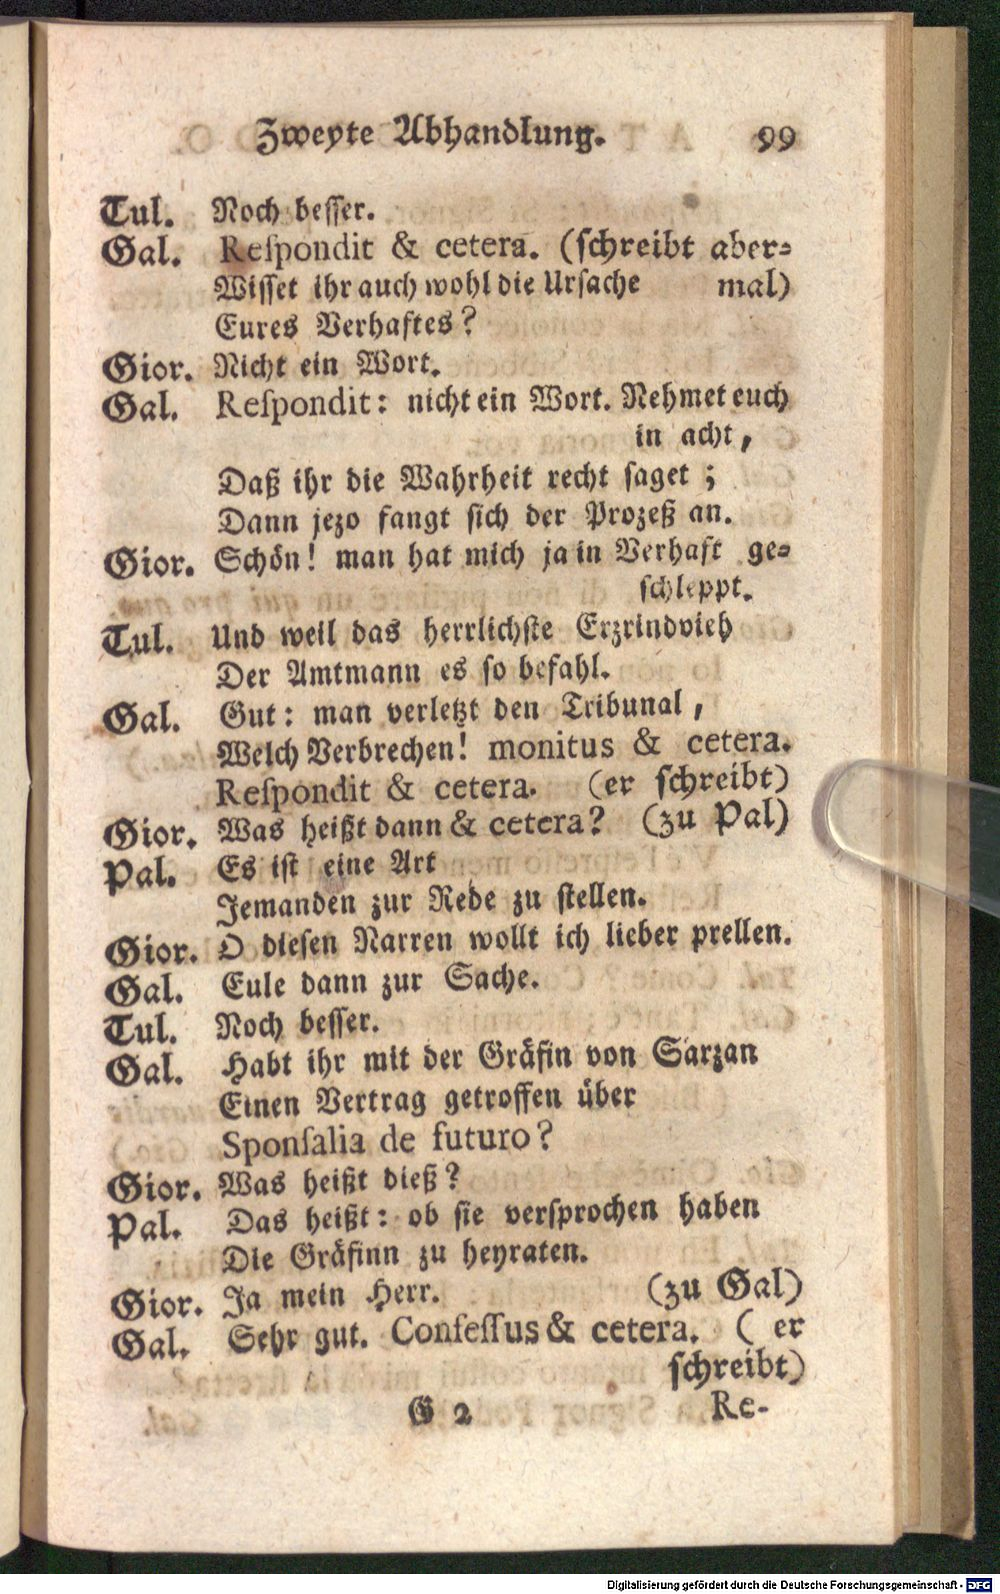 Zweyte Abhandlung. 99
Tul. Noch besser.
Gal. Reſpondit & cetera. (schreibt aber=
Wisset ihr auch wohl die Ursache mal)
Eures Verhaftes?
Gior. Nicht ein Wort.
Gal. Reſpondit: nicht ein Wort. Nehmet euch
in acht,
Daß ihr die Wahrheit recht saget;
Dann jezo fangt sich der Prozeß an.
Gior. Schön! man hat mich ja in Verhaft ge=
schleppt.
Tul. Und weil das herrlichste Erzrindvieh
Der Amtmann es so befahl.
Gal. Gut: man verletzt den Tribunal,
Welch Verbrechen! monitus & cetera.
Reſpondit & cetera. (er schreibt)
Gior. Was heißt dann & cetera? (zu Pal)
Pal. Es ist eine Art
Jemanden zur Rede zu stellen.
Gior. O diesen Narren wollt ich lieber prellen.
Gal. Eule dann zur Sache.
Tul. Noch besser.
Gal. Habt ihr mit der Gräfin von Sarzan
Einen Vertrag getroffen über
Sponſalia de futuro?
Gior. Was heißt dieß?
Pal. Das heißt: ob sie versprochen haben
Die Gräfinn zu heyraten.
Gior. Ja mein Herr. (zu Gal)
Gal. Sehr gut. Confeſſus & cetera. (er
schreibt)
G 2 Re-
Digitalisierung gefördert durch die Deutsche Forschungsgemeinschaft - DFG